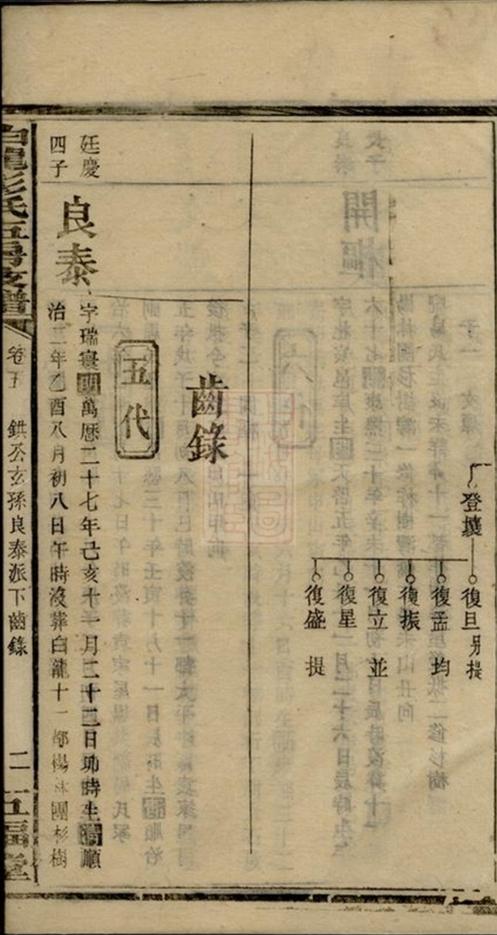 登壤
復旦 另提
復孟 均
復振
復立 並
復星
復盛 提
齒錄
五代
廷慶
四子
良泰
字瑞寰明萬曆二十七年己亥十一月二十二日卯時生清順
治二年乙酉八月初八日午時沒葬白龍十一都楊林團杉樹
白龍彭氏五房支譜
卷五 鉷公玄孫良泰派下齒錄
二
五福堂